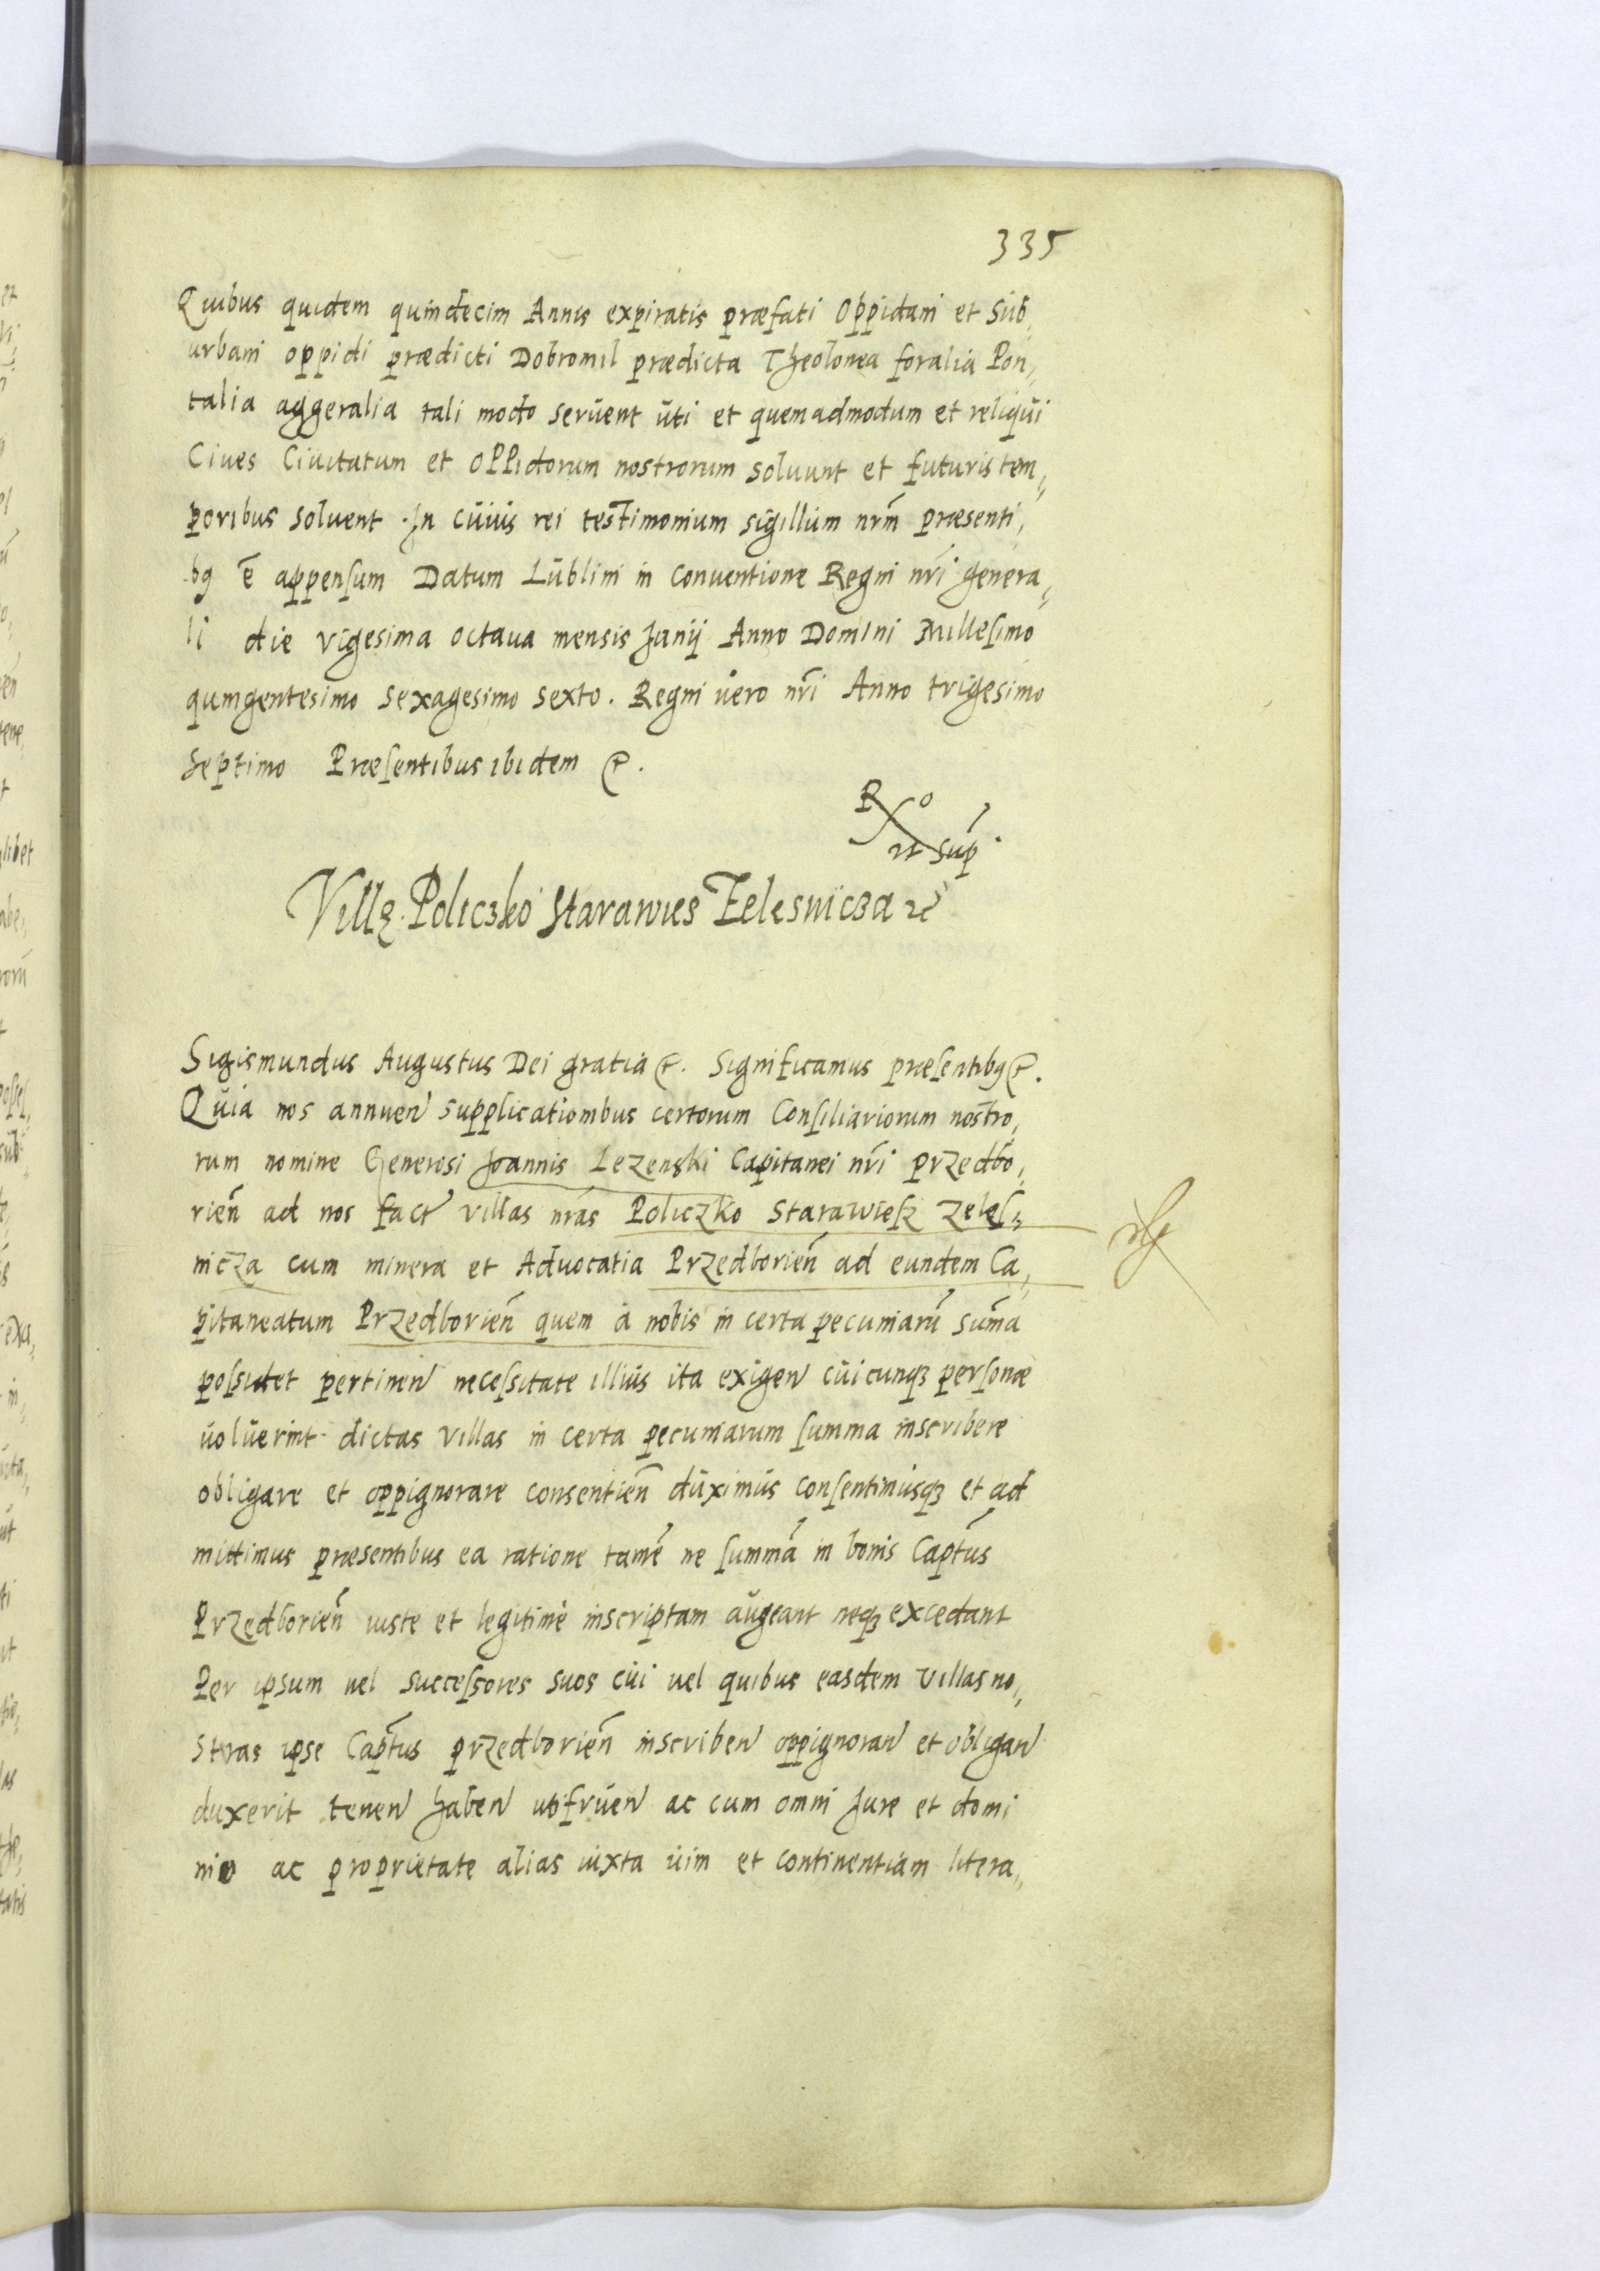 335
Quibus quidem quindecim Annis expiratis præfati Oppidani et Sub„
urbani oppidi prædicti Dobromil prædicta Theolonea foralia Pon„
talia aggeralia tali modo seruent uti et quemadmodum et reliqui
Ciues Ciuitatum et Oppidorum nostrorum soluunt et futuris tem„
poribus soluent. In cuius rei testimonium sigillum nrm̃ præsenti„
bꝯ ẽ appensum Datum Lublini in Conuentione Regni nri̅ genera„
li die vigesima octaua mensis Junij Anno Domini Millesimo
quingentesimo sexagesimo sexto. Regni uero nri̅ Anno trigesimo
septimo Præsentibus ibidem &.
Ro
ut sup
Villę Policzko Starawies Zelesnicza &c
Sigismundus Augustus Dei gratia &. Significamus præsentibꝯ &.
Quia nos annuen supplicationibus certorum Consiliariorum nostro„
rum nomine Generosi Joannis Lezenski Capitanei nri̅ przedbo„
rien̄ ad nos fact villas nras̃ Policzko Starawiesz zeles„
nicza cum minera et Aduocatia Przedborien̄ ad eundem Ca„
pitaneatum Przedborien̄ quem à nobis in certa pecuniarũ sum̃a
possidet pertinen necessitate illius ita exigen cuicunqꝫ personæ
uoluerint dictas villas in certa pecuniarum summa inscribere
obligare et oppignorare consentien̄ duximus consentimusqꝫ et ad
mittimus præsentibus ea ratione tamẽ ne summã in bonis Captũs
Przedborien̄ iuste et legitimè inscriptam augeant neqꝫ excedant
Per ipsum uel successores suos cui uel quibus easdem villas no„
stras ipse Captũs przedborien̄ inscriben oppignoran et obligan
duxerit tenen haben utifruen ac cum omni Jure et domi
nio ac proprietate alias iuxta uim et continentiam litera„